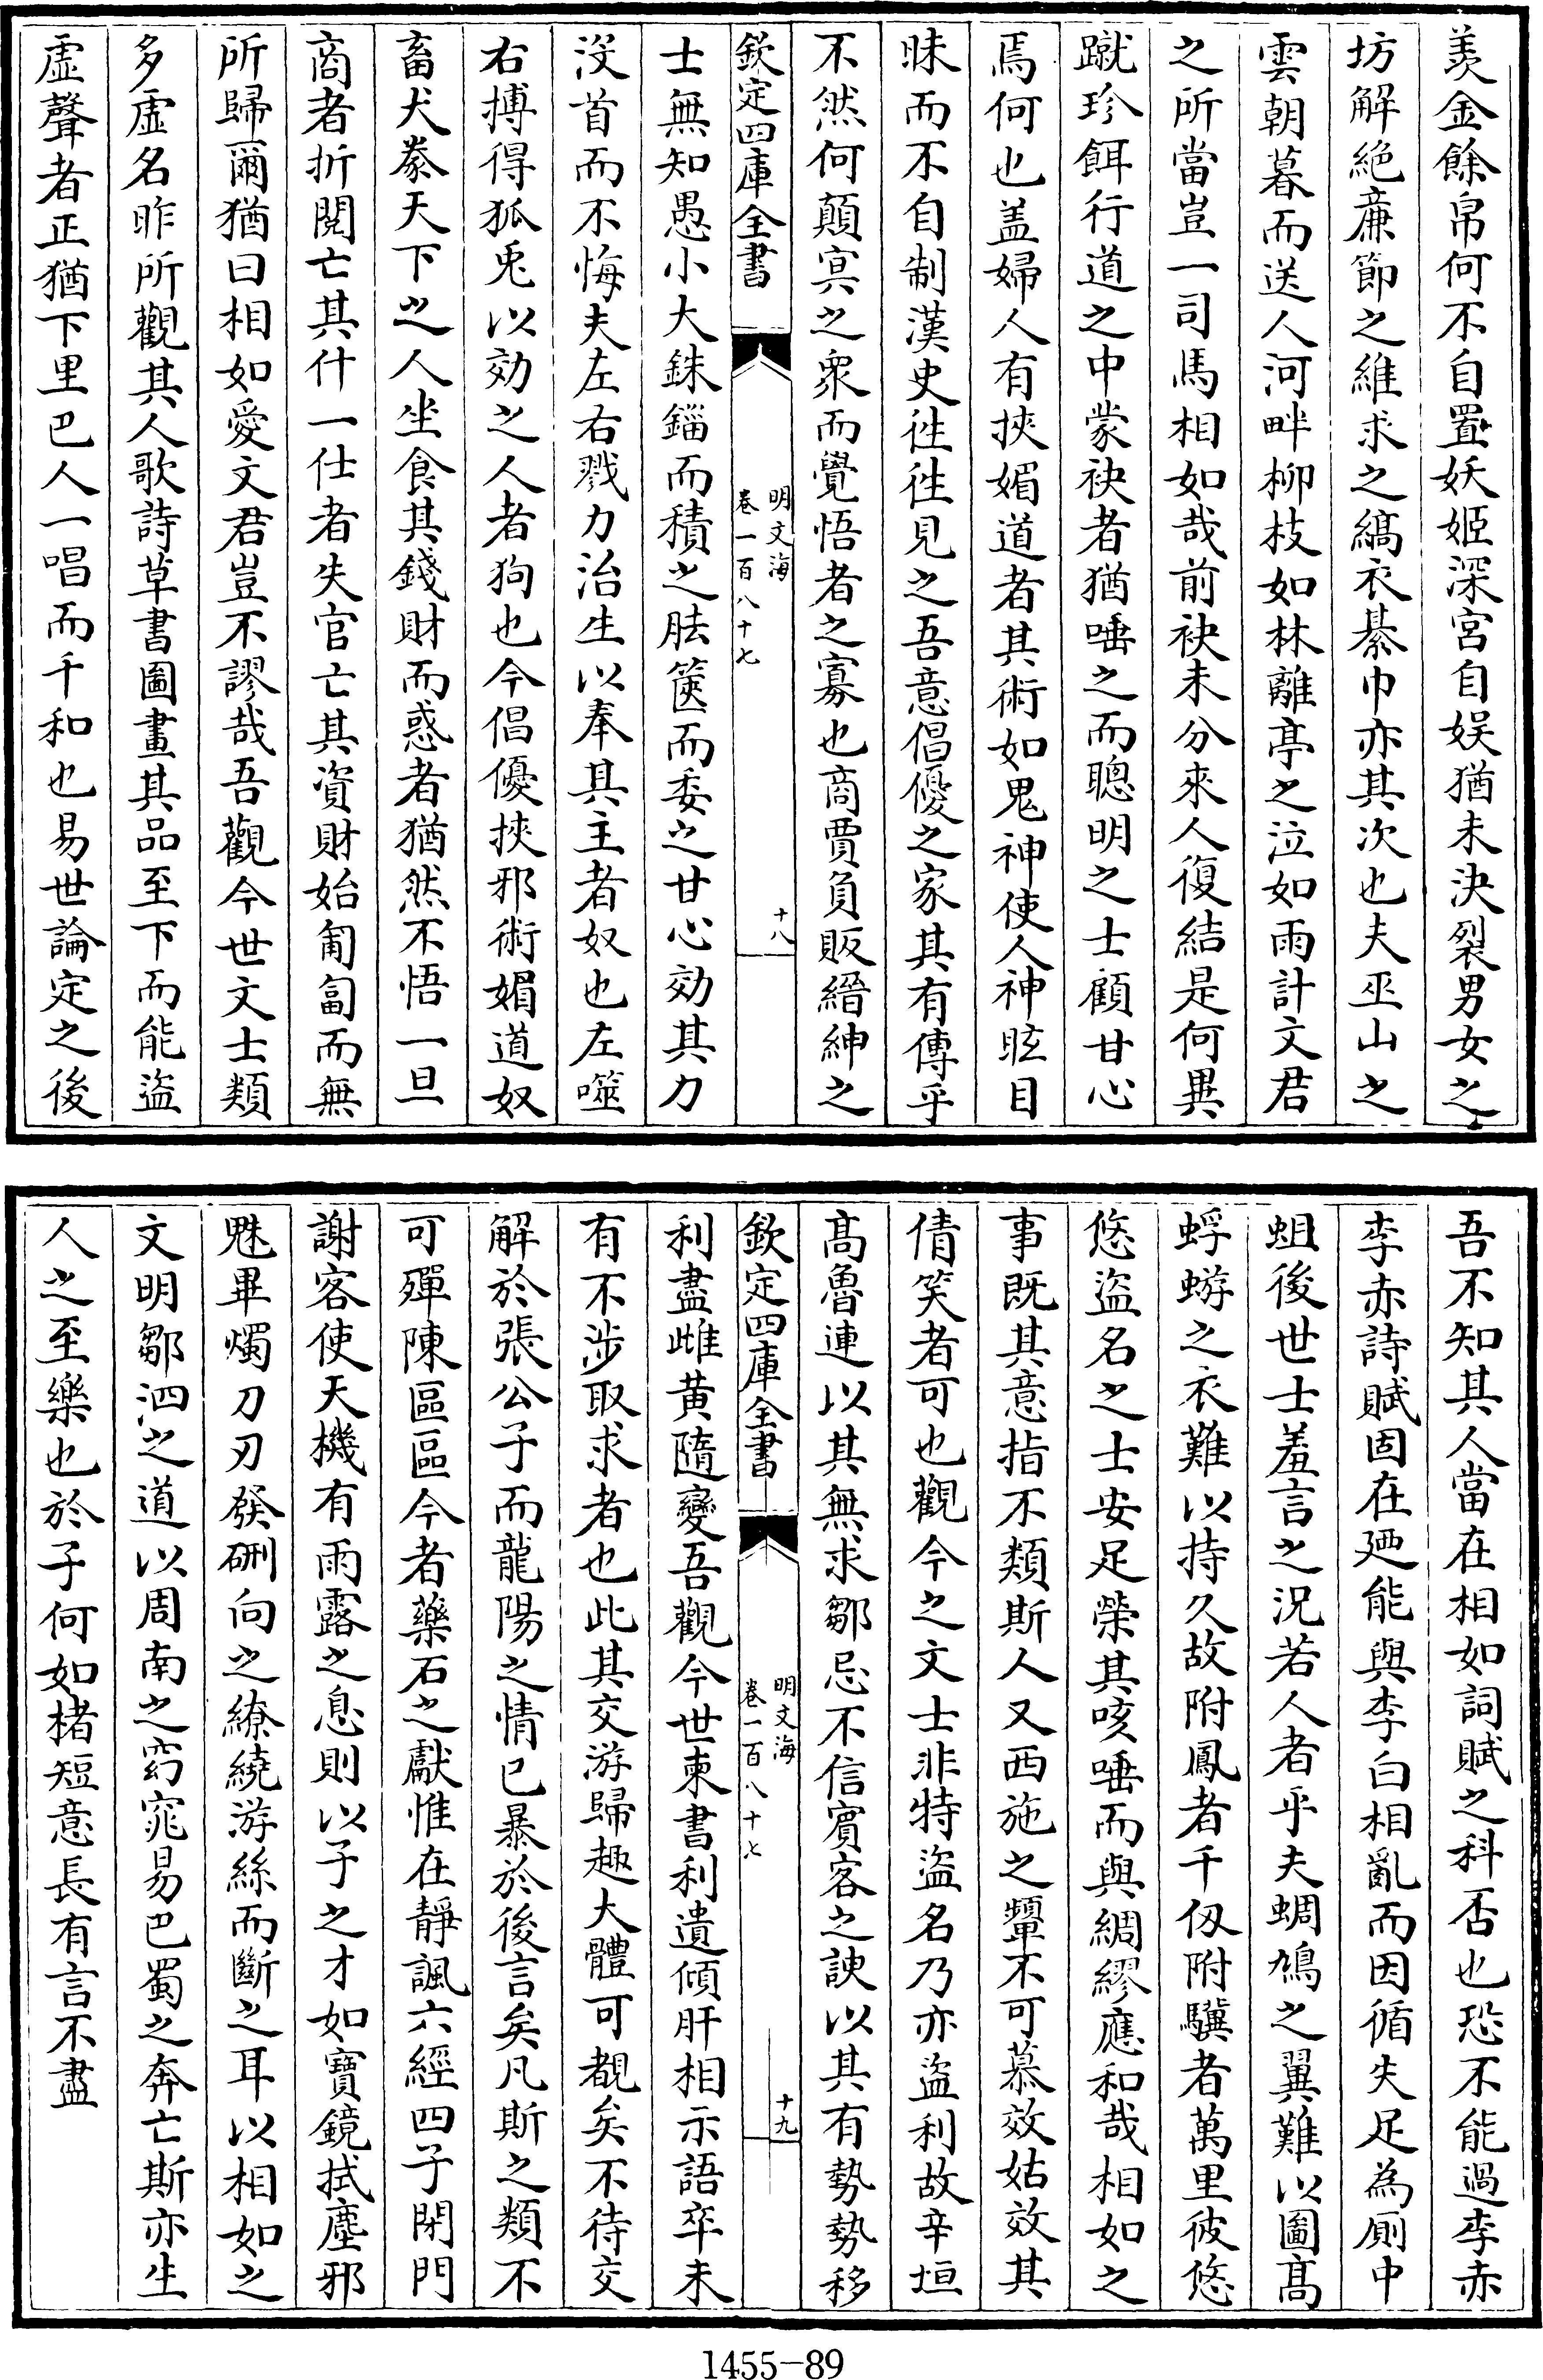 羨金餘帛何不自置妖姬深宮自娱猶未決裂男女之
坊解絶亷節之維求之縞衣綦巾亦其次也夫巫山之
雲朝暮而送人河畔柳枝如林離亭之泣如雨計文君
之所當豈一司馬相如哉前袂未分來人復結是何異
蹴珍餌行道之中蒙袂者猶唾之而聰明之士顧甘心
焉何也盖婦人有挾媚道者其術如鬼神使人神眩目
眛而不自制漢史徃徃見之吾意倡優之家其有傳乎
不然何顛㝠之衆而覺悟者之寡也商賈負販縉紳之
欽定四庫全書
明文海
卷一百八十七
十八
士無知愚小大銖錙而積之胠篋而委之甘心効其力
沒首而不悔夫左右戮力治生以奉其主者奴也左噬
右搏得狐兎以効之人者狗也今倡優挾邪術媚道奴
畜犬豢天下之人坐食其錢財而惑者猶然不悟一旦
商者折閲亡其什一仕者失官亡其資財始匍匐而無
所歸爾猶曰相如愛文君豈不謬哉吾觀今世文士類
多虚名昨所觀其人歌詩草書圖畫其品至下而能盗
虚聲者正猶下里巴人一唱而千和也易世論定之後
吾不知其人當在相如詞賦之科否也恐不能過李赤
李赤詩賦固在廼能與李白相亂而因循失足為厠中
蛆後世士羞言之況若人者乎夫蜩鳩之翼難以圖髙
蜉蝣之衣難以持久故附鳳者千仭附驥者萬里彼悠
悠盗名之士安足榮其咳唾而與綢繆應和哉相如之
事既其意指不類斯人又西施之顰不可慕效姑效其
倩笑者可也觀今之文士非特盗名乃亦盗利故辛垣
髙魯連以其無求鄒忌不信賓客之諛以其有勢勢移
欽定四庫全書
明文海
卷一百八十七
十九
利盡雌黄隨變吾觀今世柬書利遺傾肝相示語卒未
有不涉取求者也此其交游歸趣大體可覩矣不待交
解於張公子而龍陽之情已暴於後言矣凡斯之類不
可殫陳區區今者藥石之獻惟在靜諷六經四子閉門
謝客使天機有雨露之息則以子之才如寶鏡拭塵邪
魅畢燭刀刃發硎向之繚繞游絲而斷之耳以相如之
文明鄒泗之道以周南之窈窕易巴蜀之奔亡斯亦生
人之至樂也於子何如楮短意長有言不盡
1455-89